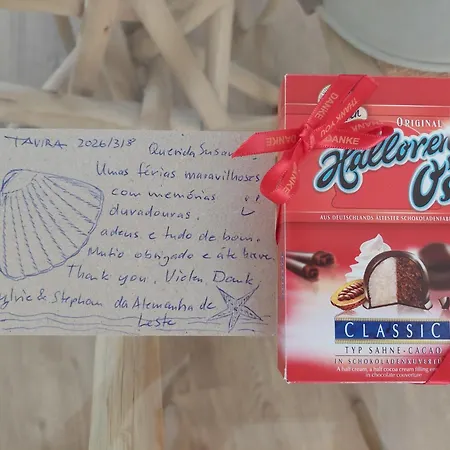 TAVIRA 2026/3/8 Querida Susan
Umas férias maravilhoses
com memórias
duradouras.
adeus e tudo de bom.
Muito obrigado e até breve
Thank you. Vielen Dank
Sylvie & Stephan da Alemanha de
Leste
DANKE THANK YOU
DANKE
DANKE
ORIGINAL
Halloren
AUS DEUTSCHLANDS ÄLTESTER SCHOKOLADENFABR
CLASSIC
TYP SAHNE-CACAO
IN SCHOKOLADENKUVERTÜ
A half cream, a half cocoa cream filling
in chocolate couverture